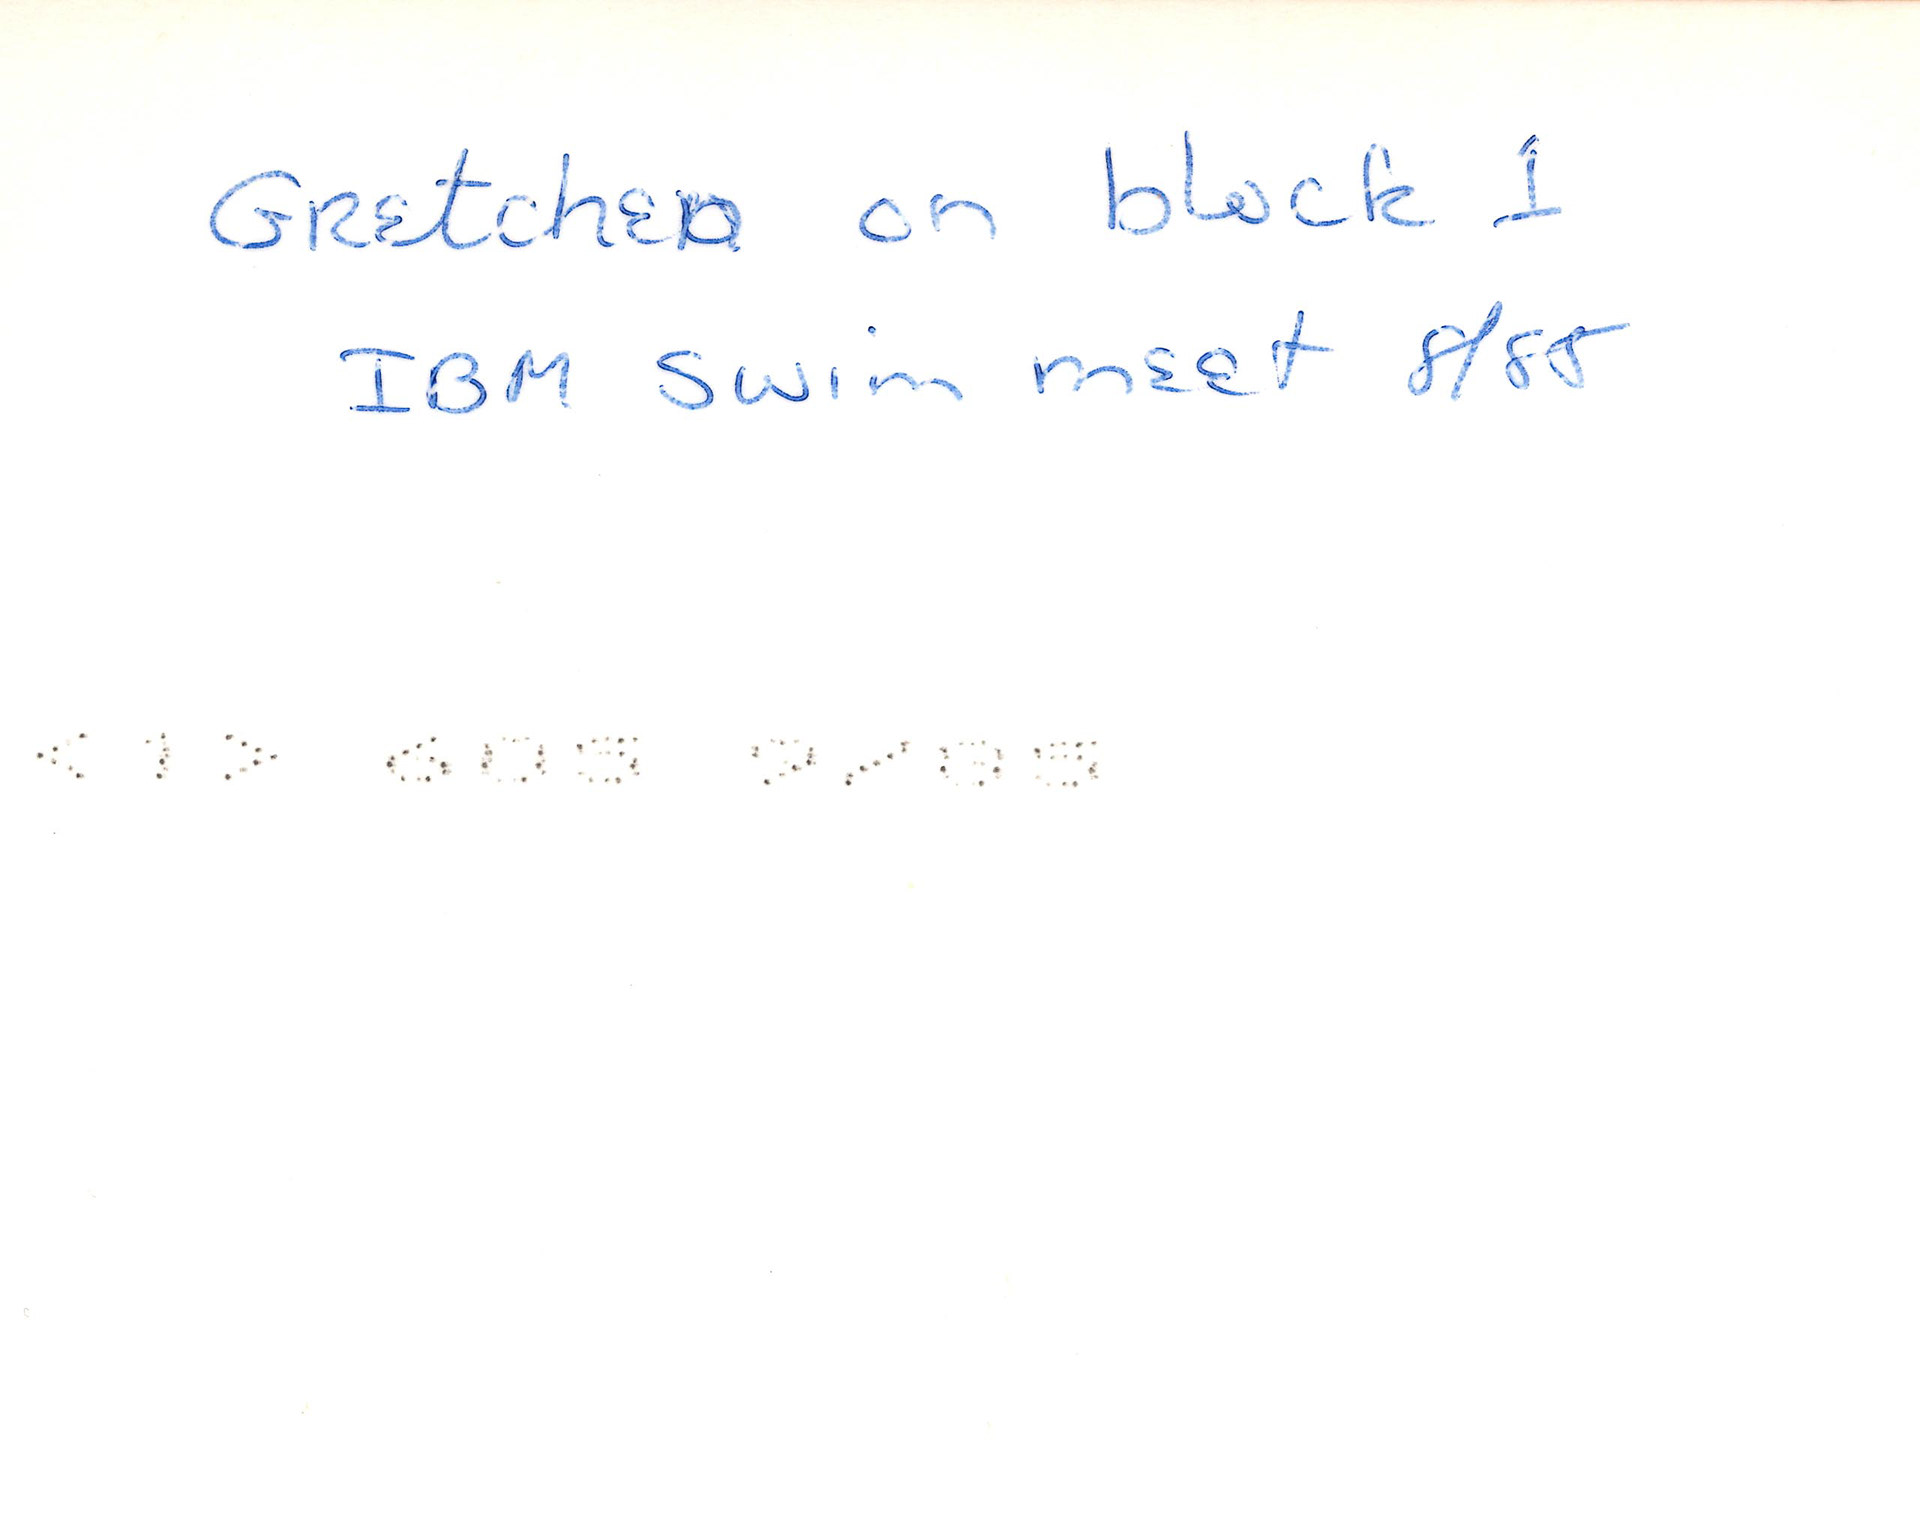 Gretchen on block 1
IBM Swim meet 8/85
< 1 > 605 9/85